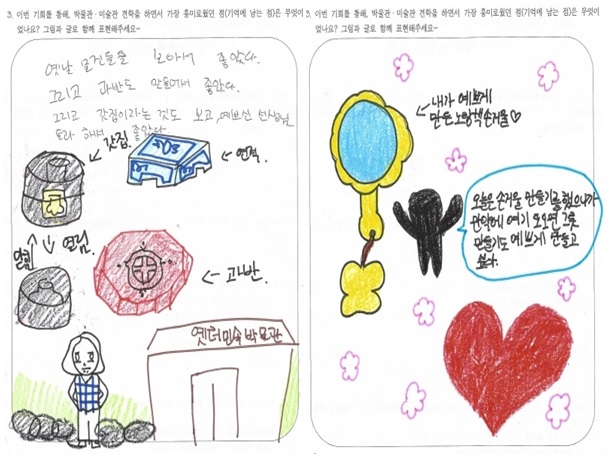 3. 이번 기회를 통해, 박물관·미술관 견학을 하면서 가장 흥미로웠던 점(기억에 남는 점)은 무엇이
었나요? 그림과 글로 함께 표현해주세요~
옛날 물건들을 보아서 좋았다.
그리고 과반도 만들어서 좋았다.
그리고 갓집이라는 것도 보고, 예쁘신 선생님
좋았다
갓집
연적
닫힘
열림
과반
옛터민속박물관
3. 이번 기회를 통해, 박물관·미술관 견학을 하면서 가장 흥미로웠던 점(기억에 남는 점)은 무엇이
었나요? 그림과 글로 함께 표현해주세요~
내가 예쁘게
만든 노랑색손거울♡
오늘은 손거울 만들기를 했으니까
만약에 여기 또오면 그릇
만들기도 예쁘게 만들고
싶다.